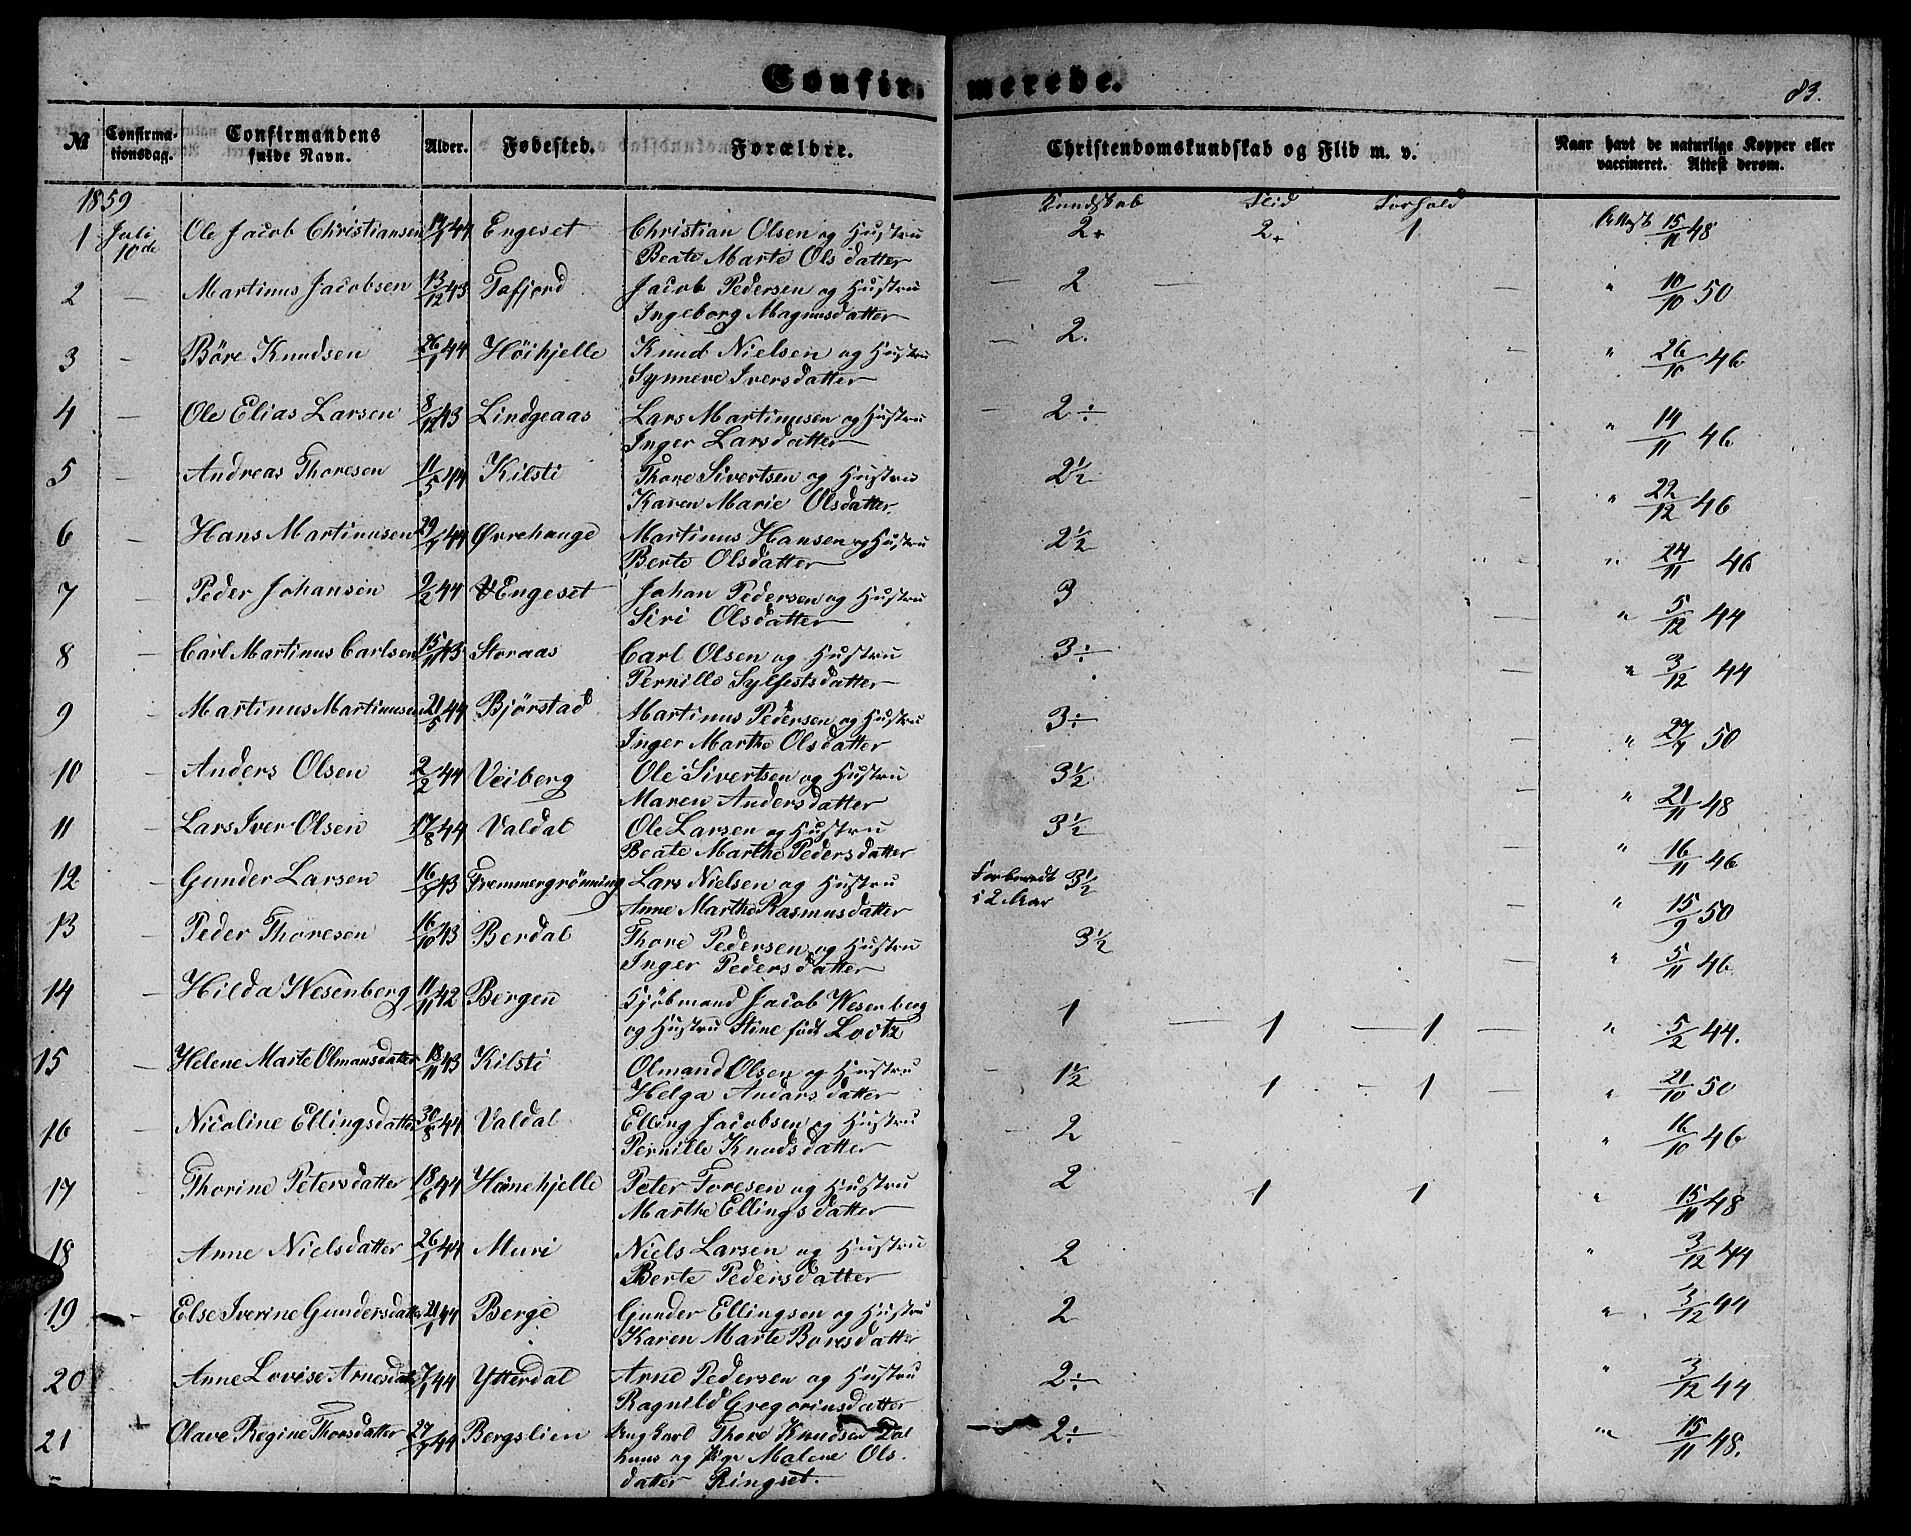 Confirmerede.
83.
№ Confirmationsdag. Confirmandens fulde Navn. Alder. Fødested. Forældre. Christendomskundskab og Flid m. v. Naar havt de naturlige Kopper eller vaccineret. Attest derom.
1859 Kundskab Flid Forhold
1 Juli 10de Ole Jacob Christiansen 44 Engeset Christian Olsen og Hustru 2+ 2+ 1 Attest 15/11 48
Beate Marte Olsdatter
2 – Martinus Jacobsen 13/12 43 Tafjord Jacob Pedersen og Hustru – 2 – – " 10/10 50
Ingeborg Magnusdatter
3 – Böre Knudsen 26/1 44 Höihjelle Knud Nielsen og Hustru – 2. – " 26/10 46
Synneve Iversdatter
4 – Ole Elias Larsen 8/12 43 Lindgeaas Lars Martinusen og Hustru – 2÷ – " 14/11 46
Inger Larsdatter
5 – Andreas Thoresen 11/5 44 Kilsti Thore Sivertsen og Hustru 2½ – " 22/12 46
Karen Marie Olsdatter
6 – Hans Martinusen 44 Øvrehauge Martinus Hansen og Hustru 2½ – " 24/11 46
Berte Olsdatter
7 – Peder Johansen 9/2 44 Engeset Johan Pedersen og Hustru 3 – " 5/12 44
Siri Olsdatter
8 – Carl Martinus Carlsen 15/11 43 Storaas Carl Olsen og Hustru 3÷ – " 3/12 44
Pernille Sylfestsdatter
9 – Martinus Martinusen 21/5 44 Bjørstad Martinus Pedersen og Hustru 3÷ – " 27/7 50
Inger Marthe Olsdatter
10 – Anders Olsen 2/2 44 Veiberg Ole Sivertsen og Hustru 3½ – " 21/11 48
Maren Andersdatter
11 – Lars Iver Olsen 17/8 44 Valdal Ole Larsen og Hustru 3½ – " 16/11 46
Beate Marthe Pedersdatter
12 – Gunder Larsen 43 Fremmergrönning Lars Nielsen og Hustru Forberedt i 2 Aar 3½ – " 15/9 50
Anne Marthe Rasmusdatter
13 – Peder Thoresen 16/10 43 Berdal Thore Pedersen og Hustru 3½ – " 5/11 46
Inger Pedersdatter
14 – Hilda Wesenberg 11/11 42 Bergen Kjöbmand Jacob Wesenberg 1 – 1 – 1 – " 5/2 44.
og Hustru Stine födt Lodtz
15 – Helene Marte Olmansdatter 18/11 43 Kilsti Olmand Olsen og Hustru – 1½ 1 – 1 – " 21/10 50
Helga Andersdatter
16 – Nicoline Ellingsdatter 30/8 44 Valdal Elling Jacobsen og Hustru – 2 – " 16/10 46
Pernille Knudsdatter
17 – Thorine Petersdatter 18/6 44 Hanehjelle Peter Toresen og Hustru 2 1 1 " 15/11 48
Marthe Ellingsdatter
18 Anne Nielsdatter 26/1 44 Muri Niels Larsen og Hustru 2 " 3/12 44
Berte Pedersdatter
19 – Else Iverine Gundersdatter 21/1 44 Berge Gunder Ellingsen og Hustru 2 " 3/12 44
Karen Marte Boresdatter
20 – Anne Lovise Arnesdatter 7/1 44 Ytterdal Arne Pedersen og Hustru 2÷ " 3/12 44
Ragnild Gregoriusdatter
21 Olave Regine Thorsdatter 44 Bergslien Ungkarl Thore Knudsen Dal 2÷ " 15/11 48.
og Pige Malene Ols
datter Ringset.